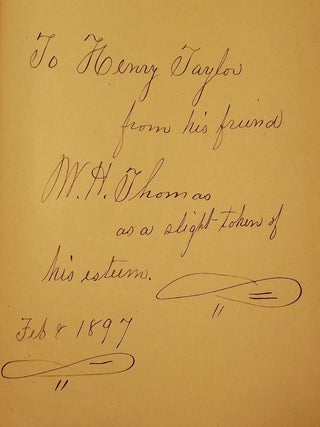 To Henry Taylor
from his friend
W. H. Thomas
as a slight token of
his esteem.
Feb 8 1897